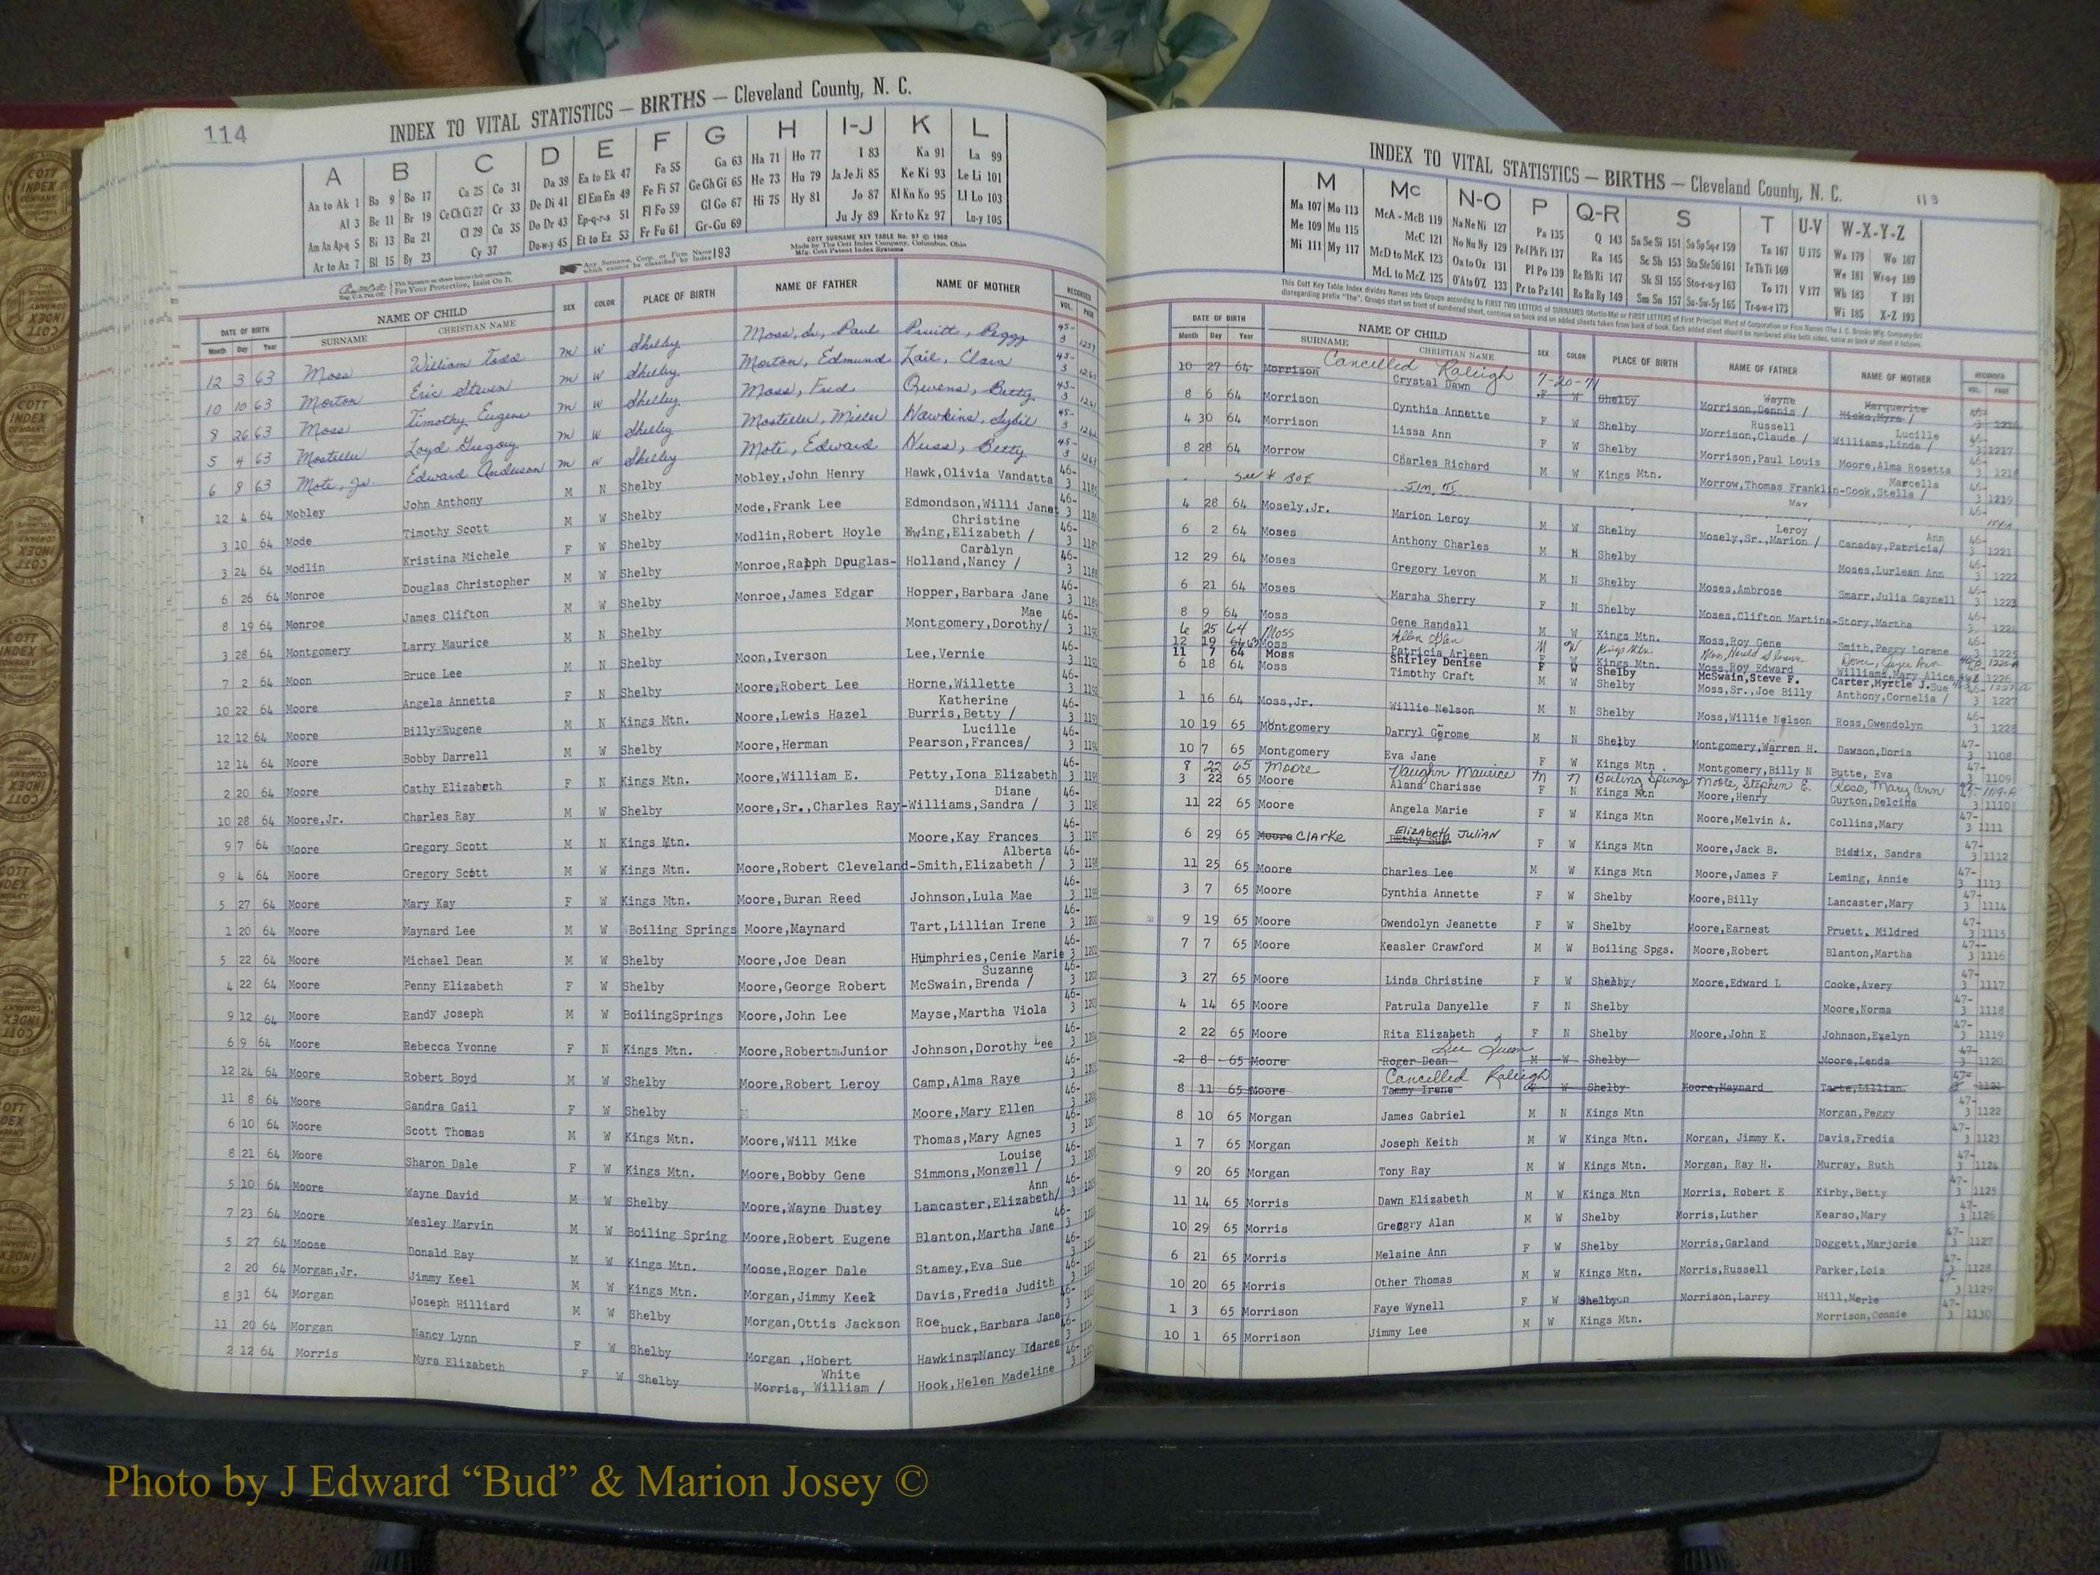 114
INDEX TO VITAL STATISTICS — BIRTHS — Cleveland County, N. C.
A B C D E F G H I-J K L
Aa to Ak 1 Ba 9 Bo 17 Ca 25 Co 31 Da 39 Ea to Ek 47 Fa 55 Ga 63 Ha 71 Ho 77 I 83 Ka 91 La 99
Al 3 Be 11 Br 19 Ce Ch Ci 27 Cr 33 De Di 41 El Em En 49 Fe Fi 57 Ge Gh Gi 65 He 73 Hu 79 Ja Je Ji 85 Ke Ki 93 Le Li 101
Am An Ap-q 5 Bi 13 Bu 21 Cl 29 Cu 35 Do Dr 43 Ep-q-r-s 51 Fl Fo 59 Gl Go 67 Hi 75 Hy 81 Jo 87 Kl Kn Ko 95 Ll Lo 103
Ar to Az 7 Bl 15 By 23 Cy 37 Du-w-y 45 Et to Ez 53 Fr Fu 61 Gr-Gu 69 Ju Jy 89 Kr to Kz 97 Lu-y 105
COTT SURNAME KEY TABLE No. 97 © 1960
Made by The Cott Index Company, Columbus, Ohio
Any Surname, Corp. or Firm Name which cannot be classified by Index 193
For Your Protection, Insist On It.
DATE OF BIRTH NAME OF CHILD SEX COLOR PLACE OF BIRTH NAME OF FATHER NAME OF MOTHER RECORDED
Month Day Year SURNAME CHRISTIAN NAME VOL. PAGE
12 3 63 Moss William Todd M W Shelby Moss, Jr, Paul Pruitt, Peggy 45-3
10 10 63 Morton Eric Steven M W Shelby Morton, Edmund Lail, Clara 45-3
8 26 63 Moss Timothy Eugene M W Shelby Moss, Fred Owens, Betty 45-3
5 4 63 Mosteller Loyd Gregory M W Shelby Mosteller, Miller Hawkins, Sybil 45-3
6 8 63 Mote, Jr Edward Anderson M W Shelby Mote, Edward Huss, Betty 45-3
12 4 64 Mobley John Anthony M N Shelby Mobley,John Henry Hawk,Olivia Vandatta 46-3
3 10 64 Mode Timothy Scott M W Shelby Mode,Frank Lee Edmondson,Willi Janet 46-3
3 24 64 Modlin Kristina Michele F W Shelby Modlin,Robert Hoyle Ewing,Elizabeth / Christine 46-3
6 26 64 Monroe Douglas Christopher M W Shelby Monroe,Ralph Douglas- Holland,Nancy / Carolyn 46-3
8 19 64 Monroe James Clifton M W Shelby Monroe,James Edgar Hopper,Barbara Jane 46-3
3 28 64 Montgomery Larry Maurice M N Shelby Montgomery,Dorothy/ Mae 46-3
7 2 64 Moon Bruce Lee M N Shelby Moon,Iverson Lee,Vernie 46-3
10 22 64 Moore Angela Annetta F N Shelby Moore,Robert Lee Horne,Willette 46-3
12 12 64 Moore Billy Eugene M N Kings Mtn. Moore,Lewis Hazel Burris,Betty / Katherine 46-3
12 14 64 Moore Bobby Darrell M W Shelby Moore,Herman Pearson,Frances/ Lucille 46-3
2 20 64 Moore Cathy Elizabeth F N Kings Mtn. Moore,William E. Petty,Iona Elizabeth 46-3
10 28 64 Moore,Jr. Charles Ray M W Shelby Moore,Sr.,Charles Ray-Williams,Sandra / Diane 46-3
9 7 64 Moore Gregory Scott M N Kings Mtn. Moore,Kay Frances 46-3
9 4 64 Moore Gregory Scott M W Kings Mtn. Moore,Robert Cleveland-Smith,Elizabeth / Alberta 46-3
5 27 64 Moore Mary Kay F W Kings Mtn. Moore,Buran Reed Johnson,Lula Mae 46-3
1 20 64 Moore Maynard Lee M W Boiling Springs Moore,Maynard Tart,Lillian Irene 46-3
5 22 64 Moore Michael Dean M W Shelby Moore,Joe Dean Humphries,Cenie Marie 46-3
4 22 64 Moore Penny Elizabeth F W Shelby Moore,George Robert McSwain,Brenda / Suzanne 46-3
9 12 64 Moore Randy Joseph M W BoilingSprings Moore,John Lee Mayse,Martha Viola 46-3
6 9 64 Moore Rebecca Yvonne F N Kings Mtn. Moore,Robert Junior Johnson,Dorothy Lee 46-3
12 24 64 Moore Robert Boyd M W Shelby Moore,Robert Leroy Camp,Alma Raye 46-3
11 8 64 Moore Sandra Gail F W Shelby Moore,Mary Ellen 46-3
6 10 64 Moore Scott Thomas M W Kings Mtn. Moore,Will Mike Thomas,Mary Agnes 46-3
8 21 64 Moore Sharon Dale F W Kings Mtn. Moore,Bobby Gene Simmons,Monzell / Louise 46-3
5 10 64 Moore Wayne David M W Shelby Moore,Wayne Dustey Lancaster,Elizabeth/ Ann 46-3
7 23 64 Moore Wesley Marvin M W Boiling Spring Moore,Robert Eugene Blanton,Martha Jane 46-3
5 27 64 Moose Donald Ray M W Kings Mtn. Moose,Roger Dale Stamey,Eva Sue 46-3
2 20 64 Morgan,Jr. Jimmy Keel M W Kings Mtn. Morgan,Jimmy Keel Davis,Fredia Judith 46-3
8 31 64 Morgan Joseph Hilliard M W Shelby Morgan,Ottis Jackson Roebuck,Barbara Jane 46-3
11 20 64 Morgan Nancy Lynn F W Shelby Morgan ,Hobert Hawkins,Nancy Idaree 46-3
2 12 64 Morris Myra Elizabeth F W Shelby Morris, William / White Hook,Helen Madeline 46-3
113
INDEX TO VITAL STATISTICS — BIRTHS — Cleveland County, N. C.
M Mc N-O P Q-R S T U-V W-X-Y-Z
Ma 107 Mo 113 McA - McB 119 Na Ne Ni 127 Pa 135 Q 143 Sa Se Si 151 So Sp Sq-r 159 Ta 167 U 175 Wa 179 Wo 187
Me 109 Mu 115 McC 121 No Nu Ny 129 Pe Pf Ph Pi 137 Ra 145 Sc Sh 153 Sta Ste Sti 161 Te Th Ti 169 We 181 Wr-u-y 189
Mi 111 My 117 McD to McK 123 Oa to Oz 131 Pl Po 139 Re Rh Ri 147 Sk Sl 155 Sto-r-u-y 163 To 171 V 177 Wh 183 Y 191
McL to McZ 125 O'A to O'Z 133 Pr to Pz 141 Ro Ru Ry 149 Sm Sn 157 Su-Sw-Sy 165 Tr-u-w-y 173 Wi 185 X-Z 193
DATE OF BIRTH NAME OF CHILD SEX COLOR PLACE OF BIRTH NAME OF FATHER NAME OF MOTHER RECORDED
Month Day Year SURNAME CHRISTIAN NAME VOL. PAGE
Cancelled Raleigh 7-20-71
10 27 64 Morrison Crystal Dawn F W Shelby Morrison,Dennis / Wayne Hicks,Myra / Marquerite 46-3
8 6 64 Morrison Cynthia Annette F W Shelby Morrison,Claude / Russell Williams,Linda / Lucille 46-3 1217
4 30 64 Morrison Lissa Ann F W Shelby Morrison,Paul Louis Moore,Alma Rosetta 46-3 1218
8 28 64 Morrow Charles Richard M W Kings Mtn. Morrow,Thomas Franklin-Cook,Stella / Marcella 46-3 1219
4 28 64 Mosely,Jr. Marion Leroy M W Shelby Mosely,Sr.,Marion / Leroy Canaday,Patricia/ Ann 46-3 1221
6 2 64 Moses Anthony Charles M N Shelby Moses,Lurlean Ann 46-3 1222
12 29 64 Moses Gregory Levon M N Shelby Moses,Ambrose Smarr,Julia Gaynell 46-3 1223
6 21 64 Moses Marsha Sherry F N Shelby Moses,Clifton Martin-Story,Martha 46-3 1224
8 9 64 Moss Gene Randall M W Kings Mtn. Moss,Roy Gene Smith,Peggy Lorene 46-3 1225
6 25 64 Moss Allen Glen M W Kings Mtn. Dover, Joyce Ann
12 19 64 63 Moss Patricia Arleen F W Kings Mtn. Moss,Roy Edward Williams,Mary Alice 1226
11 7 64 Moss Shirley Denise F W Shelby McSwain,Steve F. Carter,Myrtle J.
6 18 64 Moss Timothy Craft M W Shelby Moss,Sr.,Joe Billy Anthony,Cornelia / Sue 46-3 1227
1 16 64 Moss,Jr. Willie Nelson M N Shelby Moss,Willie Nelson Ross,Gwendolyn 46-3 1228
10 19 65 Montgomery Darryl Gerome M N Shelby Montgomery,Warren H. Dawson,Doris 47-3 1108
10 7 65 Montgomery Eva Jane F W Kings Mtn Montgomery,Billy N Butte, Eva 47-3 1109
8 22 65 Moore Vaughn Maurice M N Boiling Springs Moore, Stephen E. Ross, Mary Ann
3 22 65 Moore Alana Charisse F N Kings Mtn Moore,Henry Guyton,Delcina 3 1110
11 22 65 Moore Angela Marie F W Kings Mtn Moore,Melvin A. Collins,Mary 47-3 1111
6 29 65 Moore CLARKE Elizabeth JULIAN F W Kings Mtn Moore,Jack B. Biddix, Sandra 47-3 1112
11 25 65 Moore Charles Lee M W Kings Mtn Moore,James F Leming, Annie 47-3 1113
3 7 65 Moore Cynthia Annette F W Shelby Moore,Billy Lancaster,Mary 47-3 1114
9 19 65 Moore Gwendolyn Jeanette F W Shelby Moore,Earnest Pruett, Mildred 47-3 1115
7 7 65 Moore Keasler Crawford M W Boiling Spgs. Moore,Robert Blanton,Martha 47-3 1116
3 27 65 Moore Linda Christine F W Shelby Moore,Edward L Cooke,Avery 47-3 1117
4 14 65 Moore Patrula Danyelle F N Shelby Moore,Norma 47-3 1118
2 22 65 Moore Rita Elizabeth F N Shelby Moore,John E Johnson,Evelyn 47-3 1119
2 8 65 Moore Roger Dean M W Shelby Moore,Lenda 47-3 1120
Cancelled Raleigh
8 11 65 Moore Tammy Irene W Shelby Moore,Maynard Tarte,Lillian 47-3 1121
8 10 65 Morgan James Gabriel M N Kings Mtn Morgan,Peggy 47-3 1122
1 7 65 Morgan Joseph Keith M W Kings Mtn. Morgan, Jimmy K. Davis,Fredia 47-3 1123
9 20 65 Morgan Tony Ray M W Kings Mtn. Morgan, Ray H. Murray, Ruth 47-3 1124
11 14 65 Morris Dawn Elizabeth M W Kings Mtn Morris, Robert E Kirby,Betty 47-3 1125
10 29 65 Morris Gregory Alan M W Shelby Morris,Luther Kearso,Mary 47-3 1126
6 21 65 Morris Melaine Ann F W Shelby Morris,Garland Doggett,Marjorie 47-3 1127
10 20 65 Morris Other Thomas M W Kings Mtn. Morris,Russell Parker,Lois 47-3 1128
1 3 65 Morrison Faye Wynell F W Shelby Morrison,Larry Hill,Merle 47-3 1129
10 1 65 Morrison Jimmy Lee M W Kings Mtn. Morrison,Connie 47-3 1130
Photo by J Edward “Bud” & Marion Josey ©